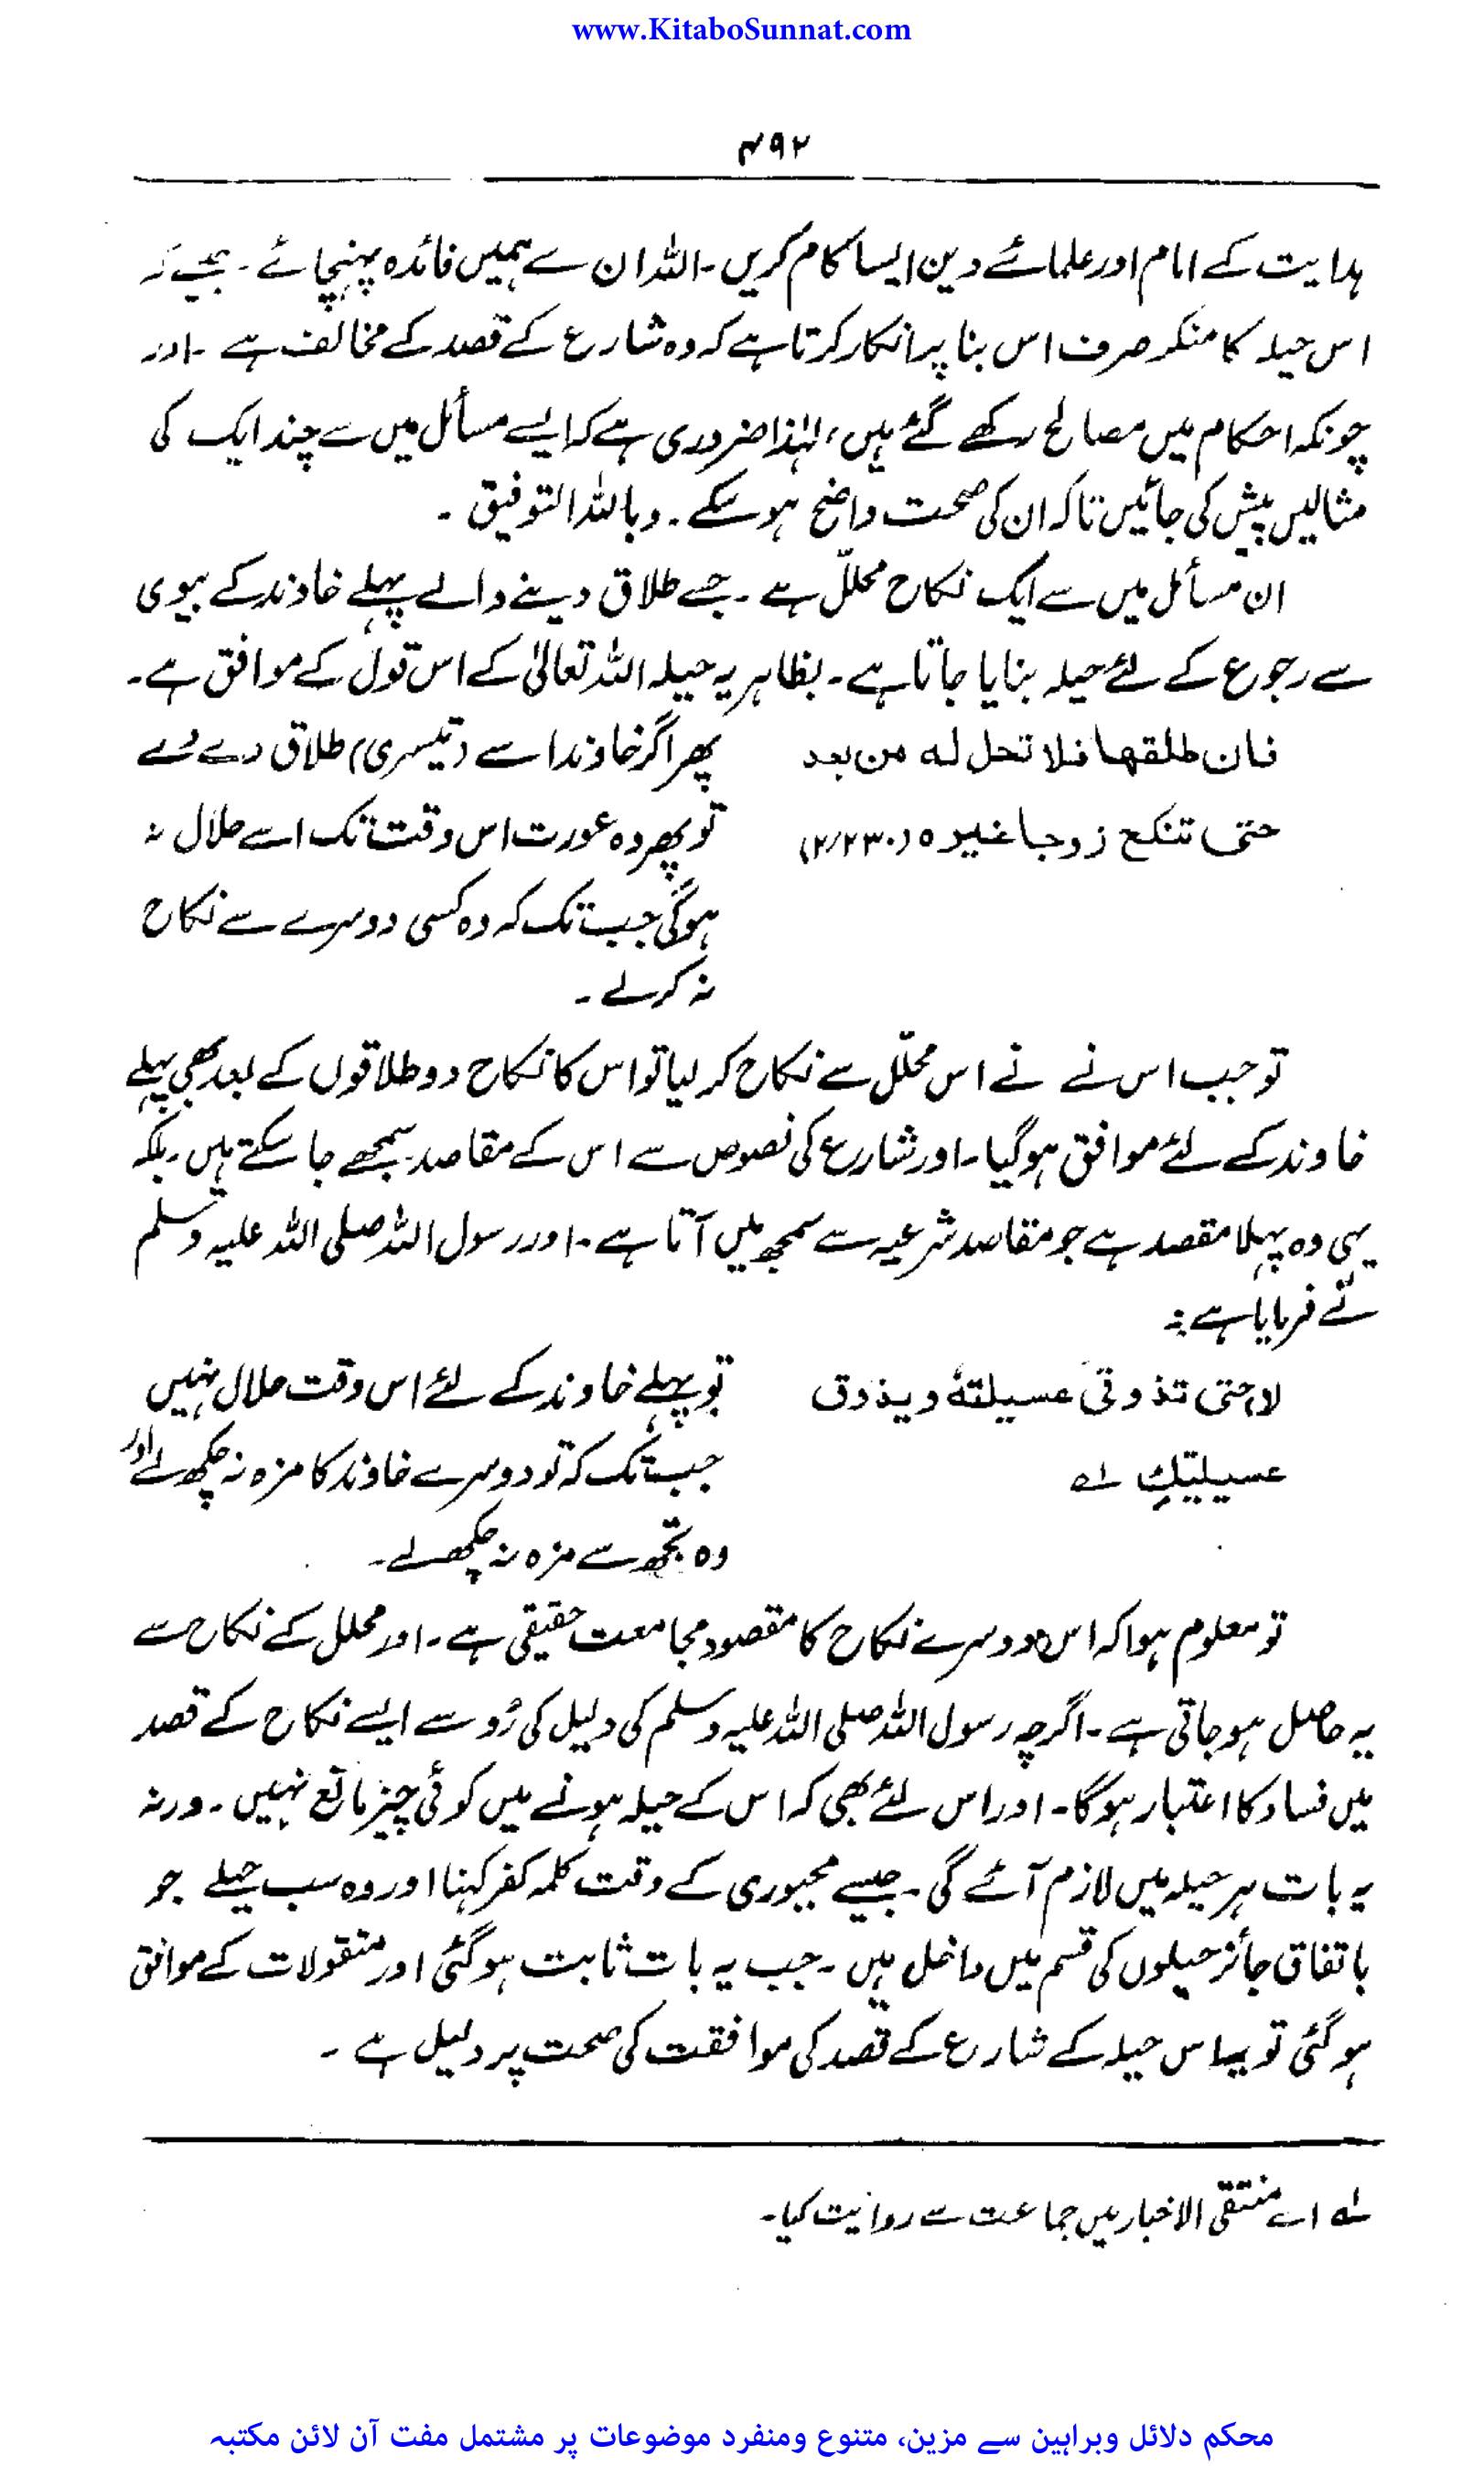 www.KitaboSunnat.com
۴۹۲
ہدایت کے امام اور علمائے دین ایسا کام کریں۔ اللہ ان سے ہمیں فائدہ پہنچائے۔ جیسے کہ
اس حیلہ کا منکر صرف اس بنا پر انکار کرتا ہے کہ وہ شارع کے قصد کے مخالف ہے۔ اور
چونکہ احکام میں مصالح رکھے گئے ہیں، لہٰذا ضروری ہے کہ ایسے مسائل میں سے چند ایک کی
مثالیں پیش کی جائیں تاکہ ان کی صحت واضح ہو سکے۔ وباللہ التوفیق۔
ان مسائل میں سے ایک نکاح محللّ ہے۔ جسے طلاق دینے والے پہلے خاوند کے بیوی
سے رجوع کے لئے حیلہ بنایا جاتا ہے۔ بظاہر یہ حیلہ اللہ تعالیٰ کے اس قول کے موافق ہے۔
فان طلقها فلا تحل له من بعد
حتى تنكح زوجا غيره (۲/۲۳۰)
پھر اگر خاوند اسے (تیسری) طلاق دے دے
تو پھر وہ عورت اس وقت تک اسے حلال نہ
ہوگی جب تک کہ وہ کسی دوسرے سے نکاح
نہ کرلے۔
تو جب اس نے نے اس محلّل سے نکاح کر لیا تو اس کا نکاح دو طلاقوں کے بعد بھی پہلے
خاوند کے لئے موافق ہوگیا۔ اور شارع کی نصوص سے اس کے مقاصد سمجھے جا سکتے ہیں۔ بلکہ
یہی وہ پہلا مقصد ہے جو مقاصد شرعیہ سے سمجھ میں آتا ہے۔ اور رسول اللہ صلی اللہ علیہ وسلم
نے فرمایا ہے :
لا حتى تذوقى عسيلتهٗ ويذوق
عسيليتكِ لـه
تو پہلے خاوند کے لئے اس وقت حلال نہیں
جب تک کہ تو دوسرے خاوند کا مزہ نہ چکھ لے اور
وہ تجھ سے مزہ نہ چکھ لے۔
تو معلوم ہوا کہ اس دوسرے نکاح کا مقصود مجامعت حقیقی ہے۔ اور محلل کے نکاح سے
یہ حاصل ہو جاتی ہے۔ اگرچہ رسول اللہ صلی اللہ علیہ وسلم کی دلیل کی رُو سے ایسے نکاح کے قصد
میں فساد کا اعتبار ہوگا۔ اور اس لئے بھی کہ اس کے حیلہ ہونے میں کوئی چیز مانع نہیں۔ ورنہ
یہ بات ہر حیلہ میں لازم آئے گی۔ جیسے مجبوری کے وقت کلمہ کفر کہنا اور وہ سب حیلے جو
باتفاق جائز حیلوں کی قسم میں داخل ہیں۔ جب یہ بات ثابت ہوگئی اور منقولات کے موافق
ہوگئی تو یہ اس حیلہ کے شارع کے قصد کی موافقت کی صحت پر دلیل ہے۔
لـه اسے منتقی الاخبار میں جماعت سے روایت کیا۔
محکم دلائل وبراہین سے مزین، متنوع ومنفرد موضوعات پر مشتمل مفت آن لائن مکتبہ